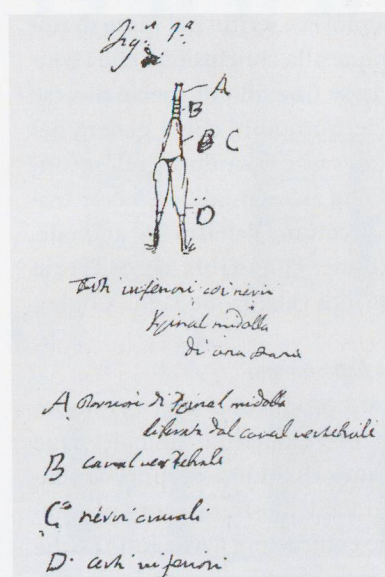 Fig.ª 1.ª
di
A
B
B C
D
inferiori coi nervi
Spinal midolla
di una rana
A porzioni di Spinal midolla
liberate dal canal vertebrale
B canal vertebrale
C nervi crurali
D. arti inferiori